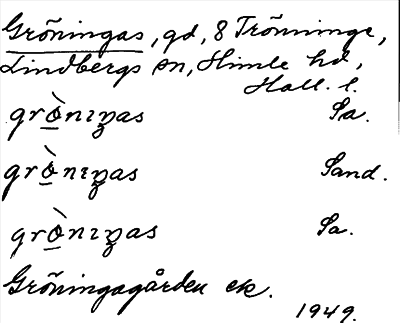 Gröningas, gd, 8 Trönninge,
Lindbergs sn, Himle hd,
Hall. l.
grò̱nıŋas Sa.
grò̱nıŋas Sand.
grò̱nıŋas Sa.
Gröningagården ek.
1949.